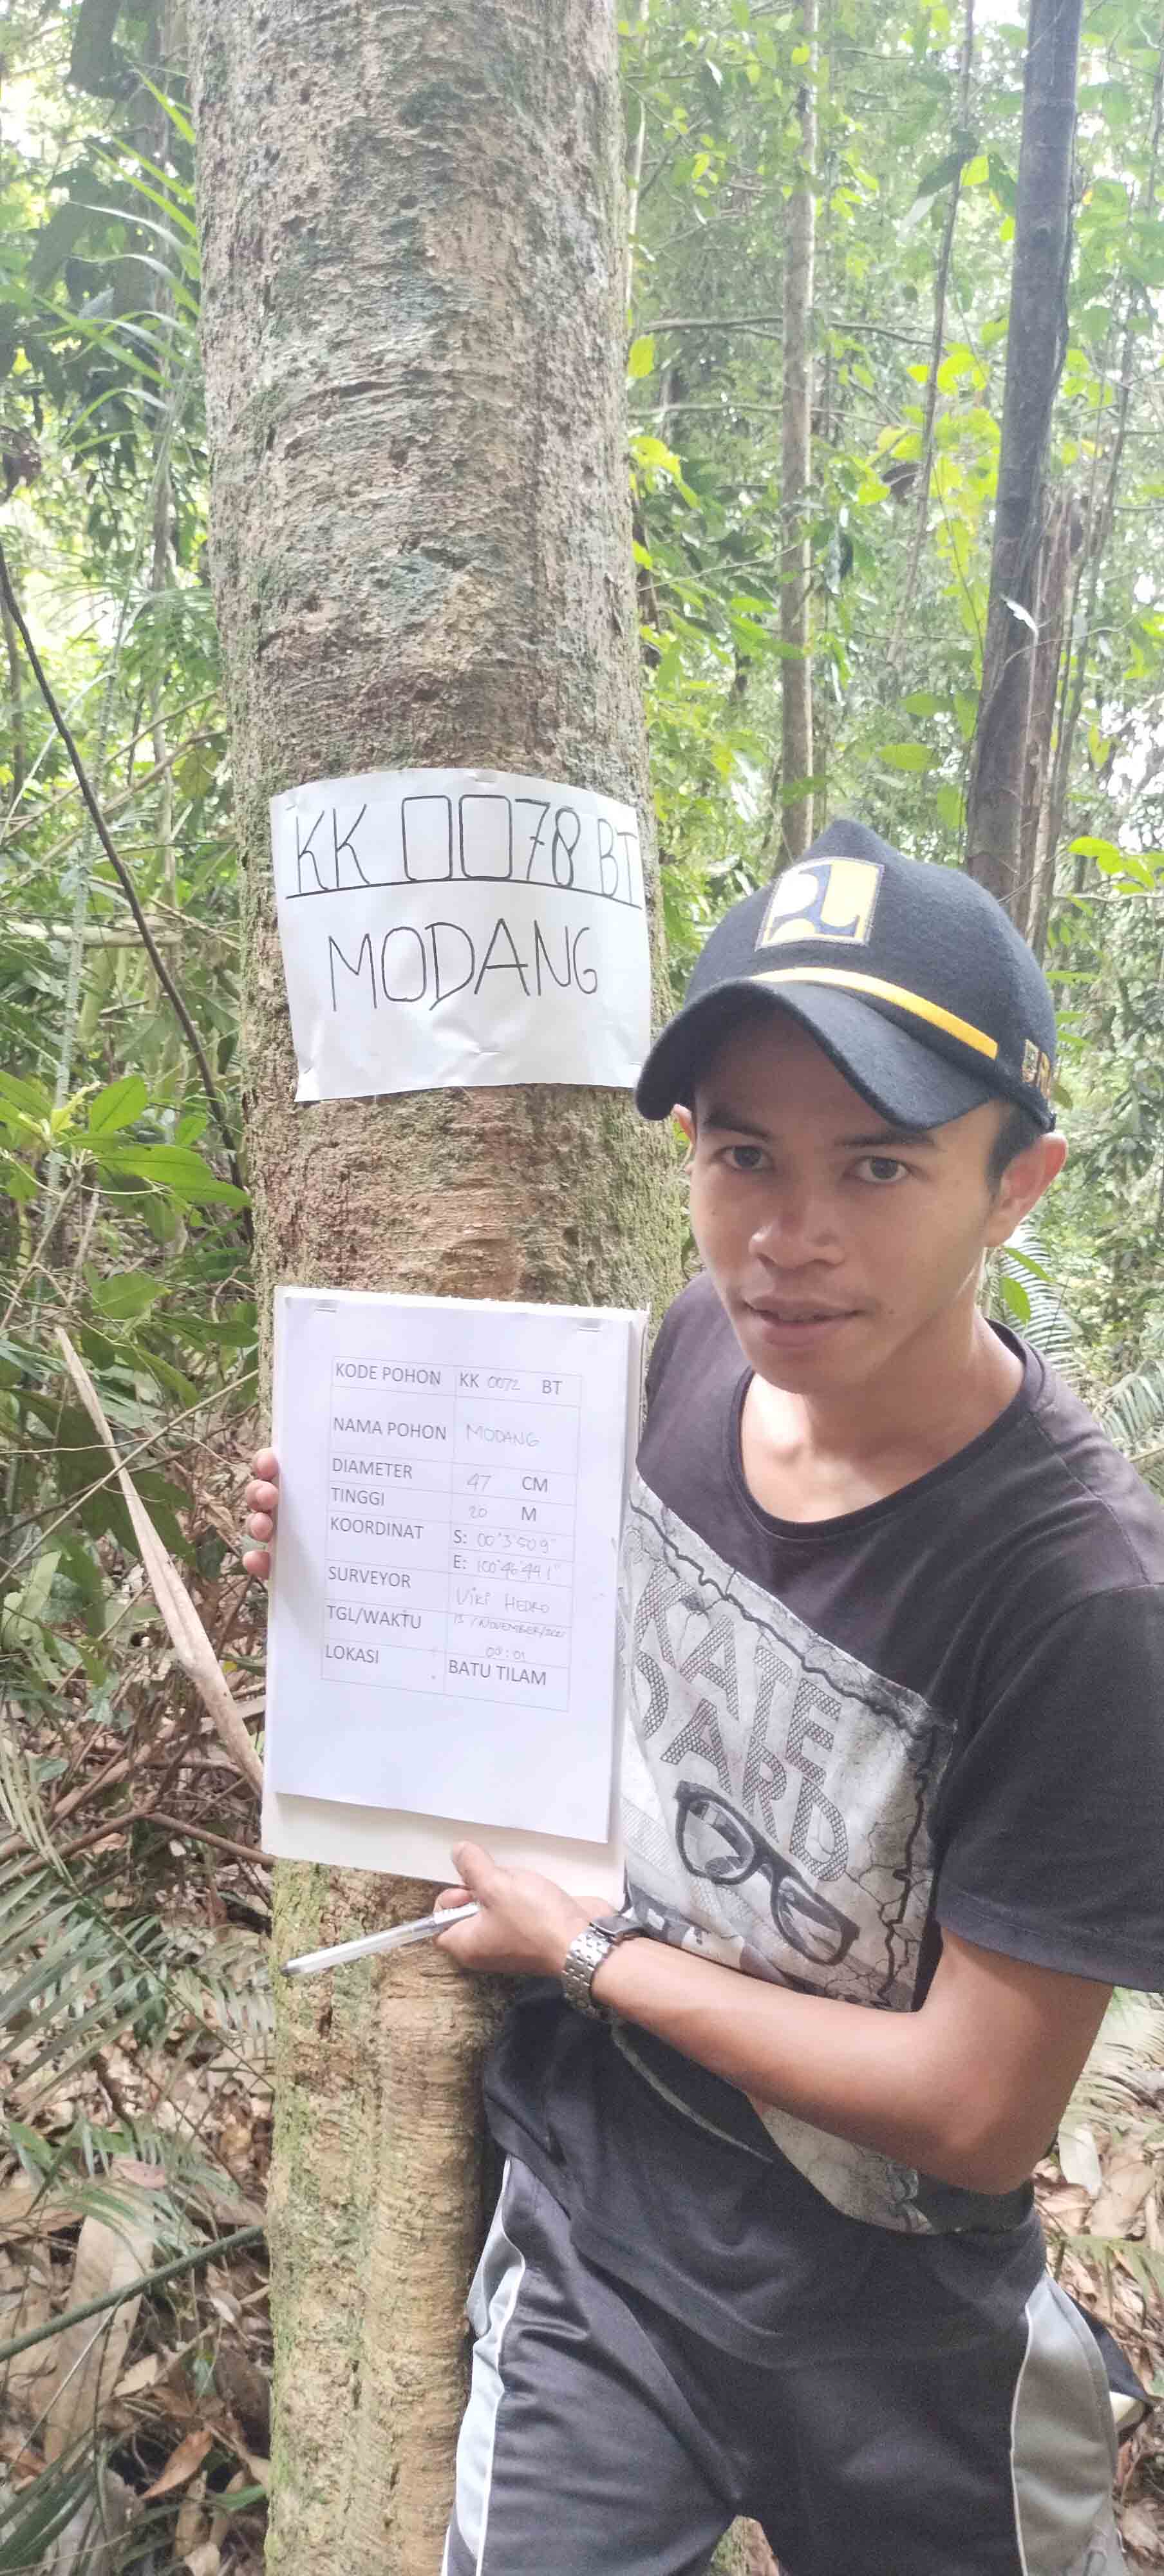 KK 0078 BT
MODANG
KODE POHON KK 0072 BT
NAMA POHON MODANG
DIAMETER 47 CM
TINGGI 20 M
KOORDINAT S: 00°3'50.9"
E: 100°46'44.1"
SURVEYOR Viki HEDRO
TGL/WAKTU 13 / NOVEMBER /
09:01
LOKASI BATU TILAM
KATE
OARD